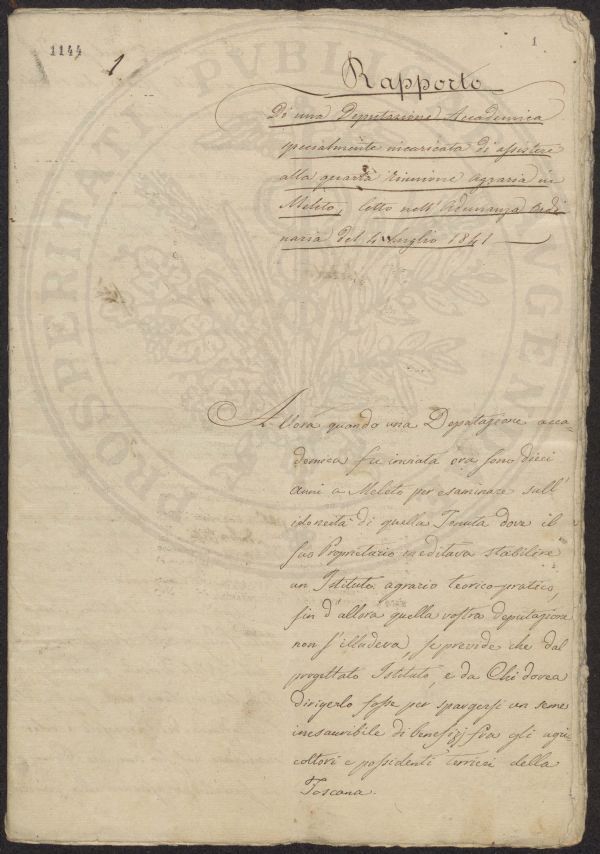 1144
1
1
PROSPERITATI PVBLICAE AVGENDAE
Rapporto
Di una Deputazione Accademica
specialmente incaricata di assistere
alla quarta riunione agraria in
Meleto, letto nell'Adunanza ordi
naria del 4 Luglio 1841
Allora quando una Deputazione acca-
demica fu inviata ora sono dieci
anni a Meleto per esaminare sull'
idoneità di quella Tenuta dove il
suo Proprietario meditava stabilire
un Istituto agrario teorico-pratico,
fin d'allora quella vostra deputazione
non s'illudeva, se previde che dal
progettato Istituto, e da Chi dovea
dirigerlo fosse per spargersi un seme
inesauribile di benefizj fra gli agri-
coltori e possidenti terrieri della
Toscana.